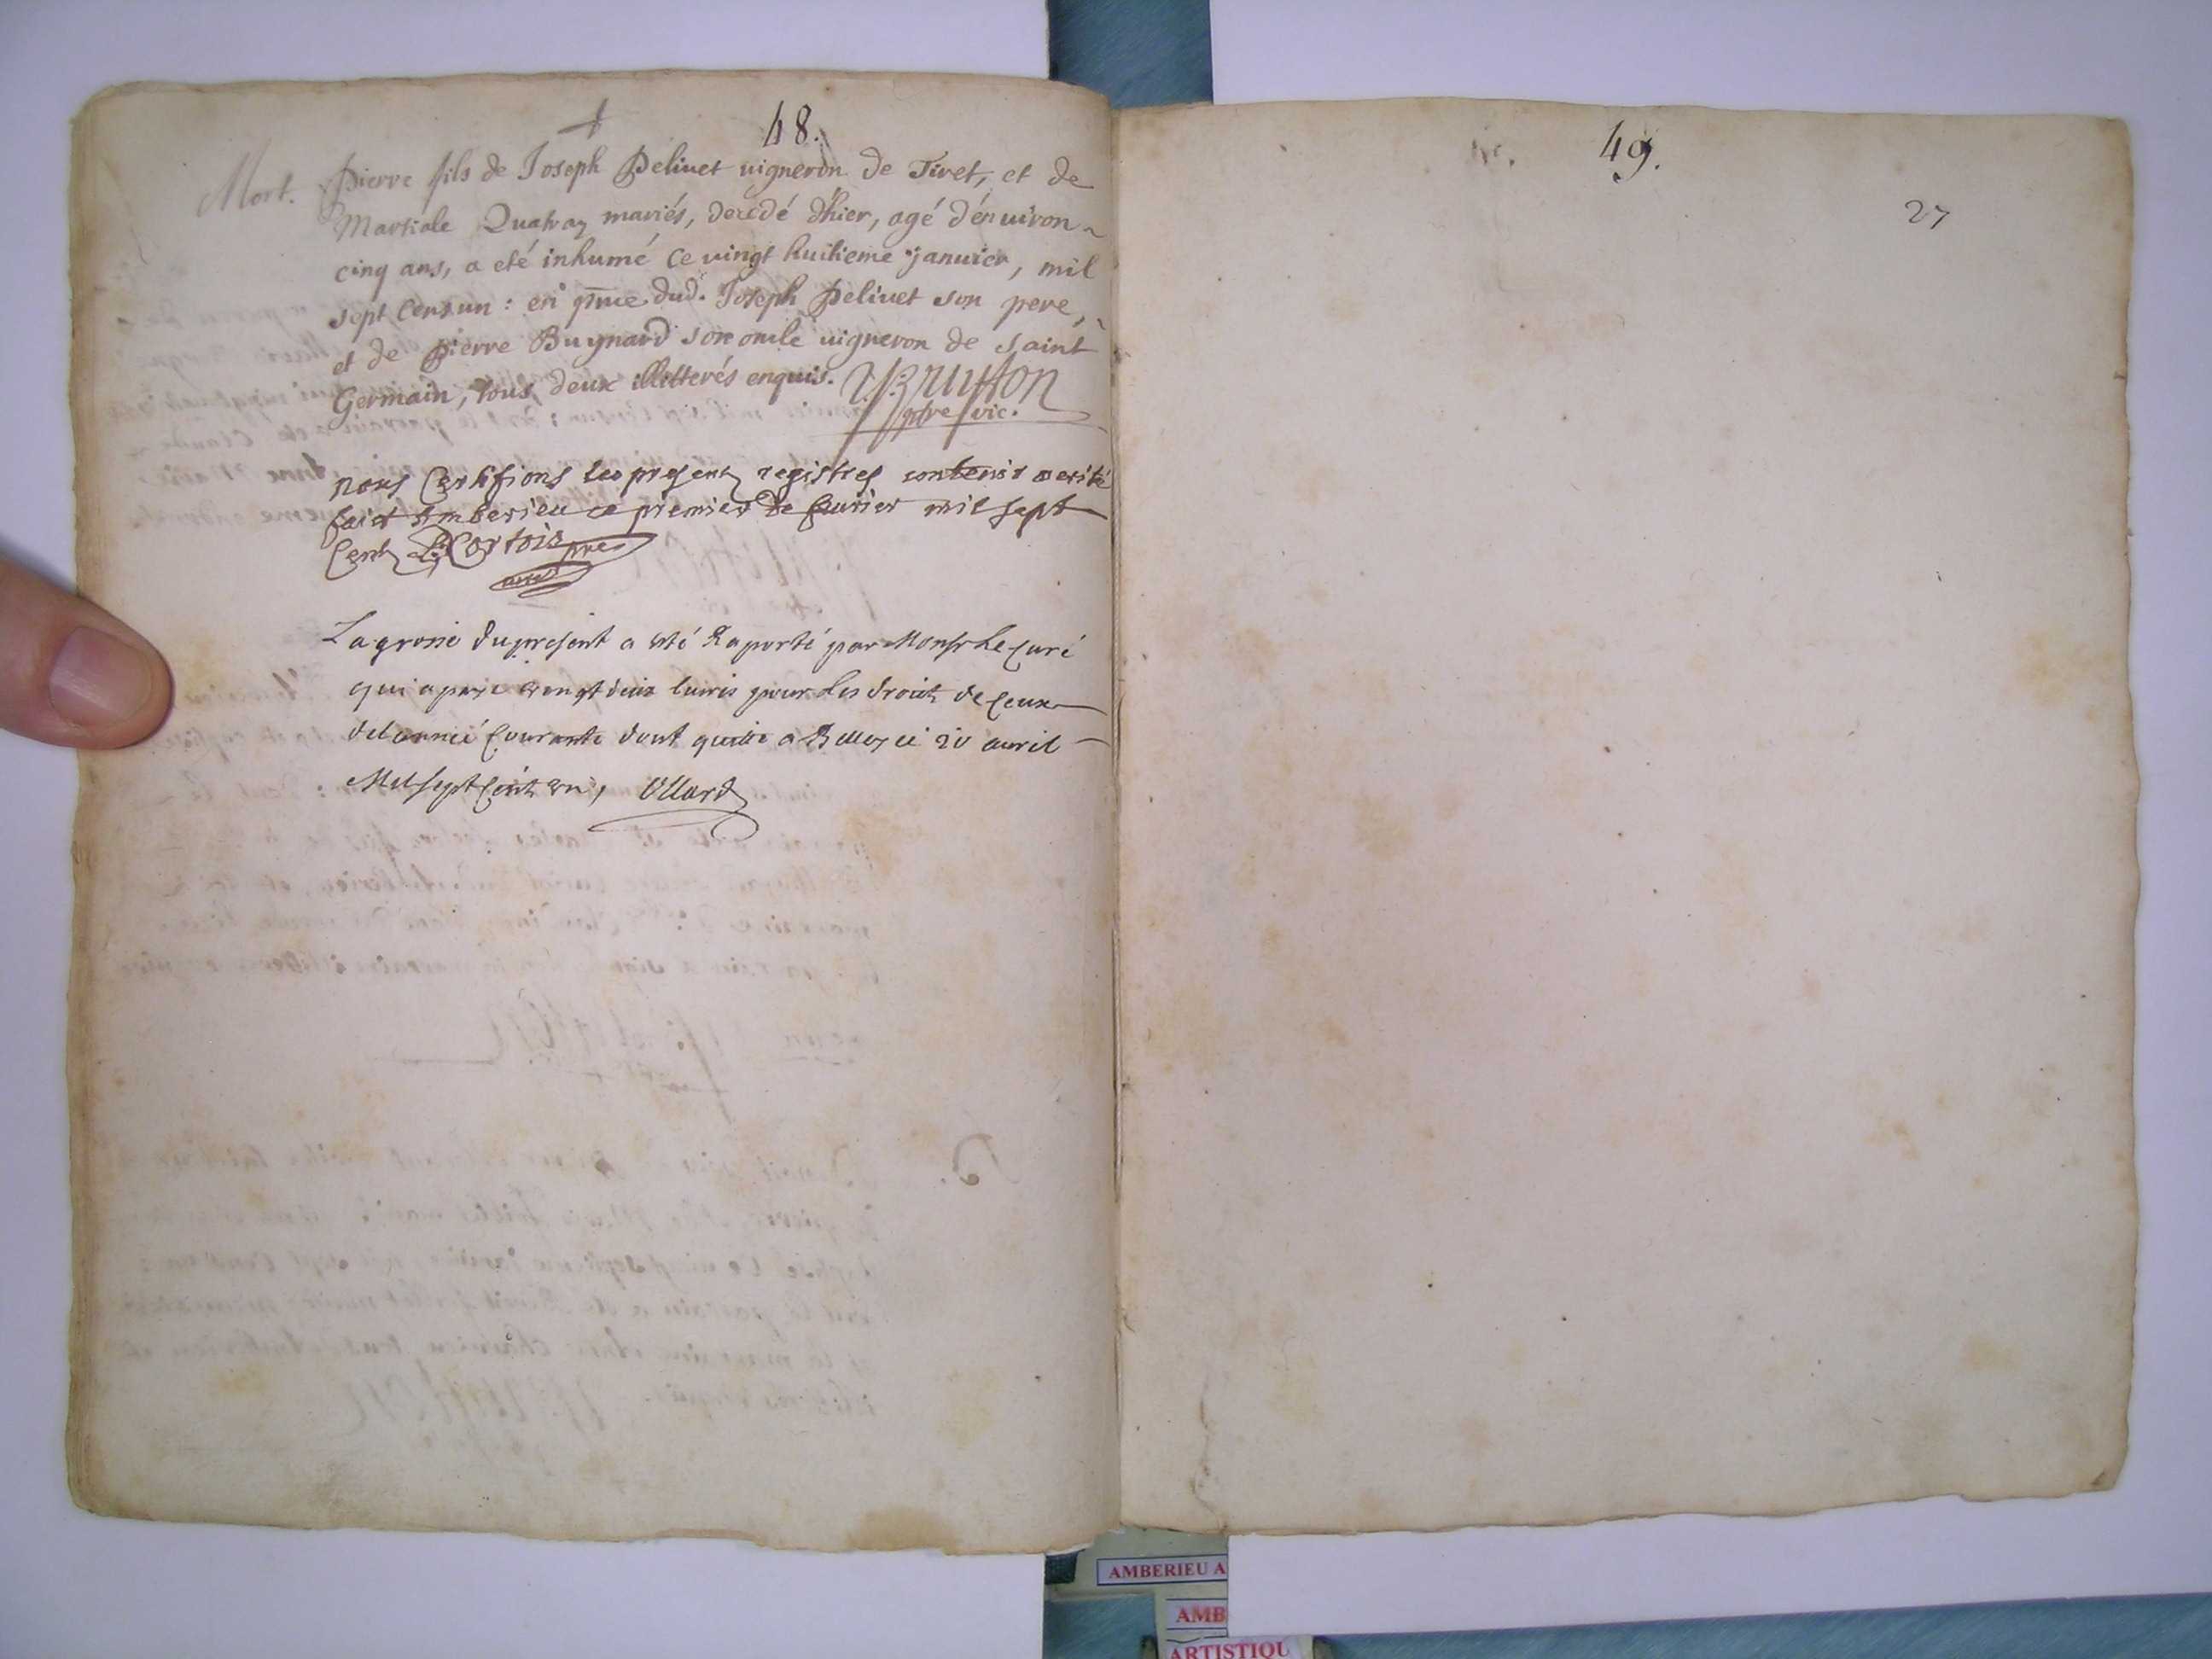 48.
Mort. Pierre fils de Joseph Pelivet vigneron de Tiret, et de
Martiale Quatraz mariés, decedé d'hier, agé d'environ
cinq ans, a eté inhumé ce vingt huitieme janvier, mil
sept cens un : en pnce dud. Joseph Pelivet son pere,
et de Pierre Bugnard son oncle vigneron de saint
Germain, tous deux illitterés enquis.
ptre vic.
nous Certifions les present registres contenir verité
fait Amberieu ce premier de fevrier mil sept
Cent Cortois
La grosse du present a esté Raporté par Monsr Le Curé
qui a payé vingt deux livres pour les droicts de ceux
de lannée Courante dont quitte a Belley ce 20 avril
Mil sept Cent un, Ollard
49.
27
AMBERIEU A
AMB
ARTISTIQU